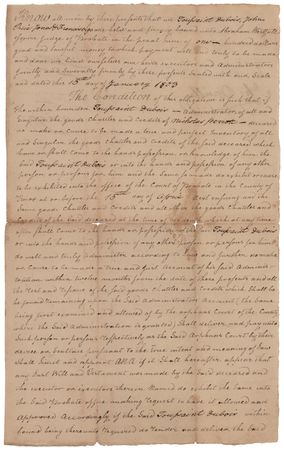 Know all men by these presents that we Toussaint Dubois, John
are held and firmly bound unto Abraham
in the penal sum of one hundred dollars
good and lawful money to which payment well and truly to be made
and done we bind ourselves our heirs executors and Administrators
jointly and severally firmly by these presents Sealed with our Seals
and dated this day of January 1803
The Condition of this obligation is such that if
the within bounden Toussaint Dubois Administrator of all and
singular the goods Chattles and Credits of Nicholas deceased
do make or cause to be made a true and perfect Inventory of all
and singular the goods chattles and credits of the said deceased which
have or shall come to the hands possession or knowledge of him the
Said Toussaint Dubois or into the hands and possession of any other
person or persons for him and the Same so made do exhibit or cause
to be exhibited into the office of the Court of Probate in the County of
Knox at or before the day of April next ensuing and the
Same goods Chattles and Credits and all other the goods Chattles and
Credits of the Said deceased at the time of which at any time
after shall Come to the hands or possession of the Said Toussaint Dubois
or into the hands and possession of any other person or persons for him
do well and truly Administer according to law and further do make
or Cause to be made a true and Just account of his Said Admin
istration within twelve months from the date of these presents and all
the rest and residue of the Said goods Chattles and Credits which Shall be
found remaining upon the Said Administrators Account the Same
being first examined and allowed by the orphans Court of the County
where the Said Administration is granted Shall deliver and pay unto
Such person or persons respectively as the Said Orphans Court by their
decree or Sentence pursuant to the true intent and meaning of law
Shall limit and appoint And if it Shall hereafter appear that
any last Will and Testament was made by the Said deceased and
the executor or executors therein Named do exhibit the Same into
the Said Probate office making request to have it Allowed and
Approved Accordingly if the Said Toussaint Dubois within
bound being thereunto required do render and deliver the Said